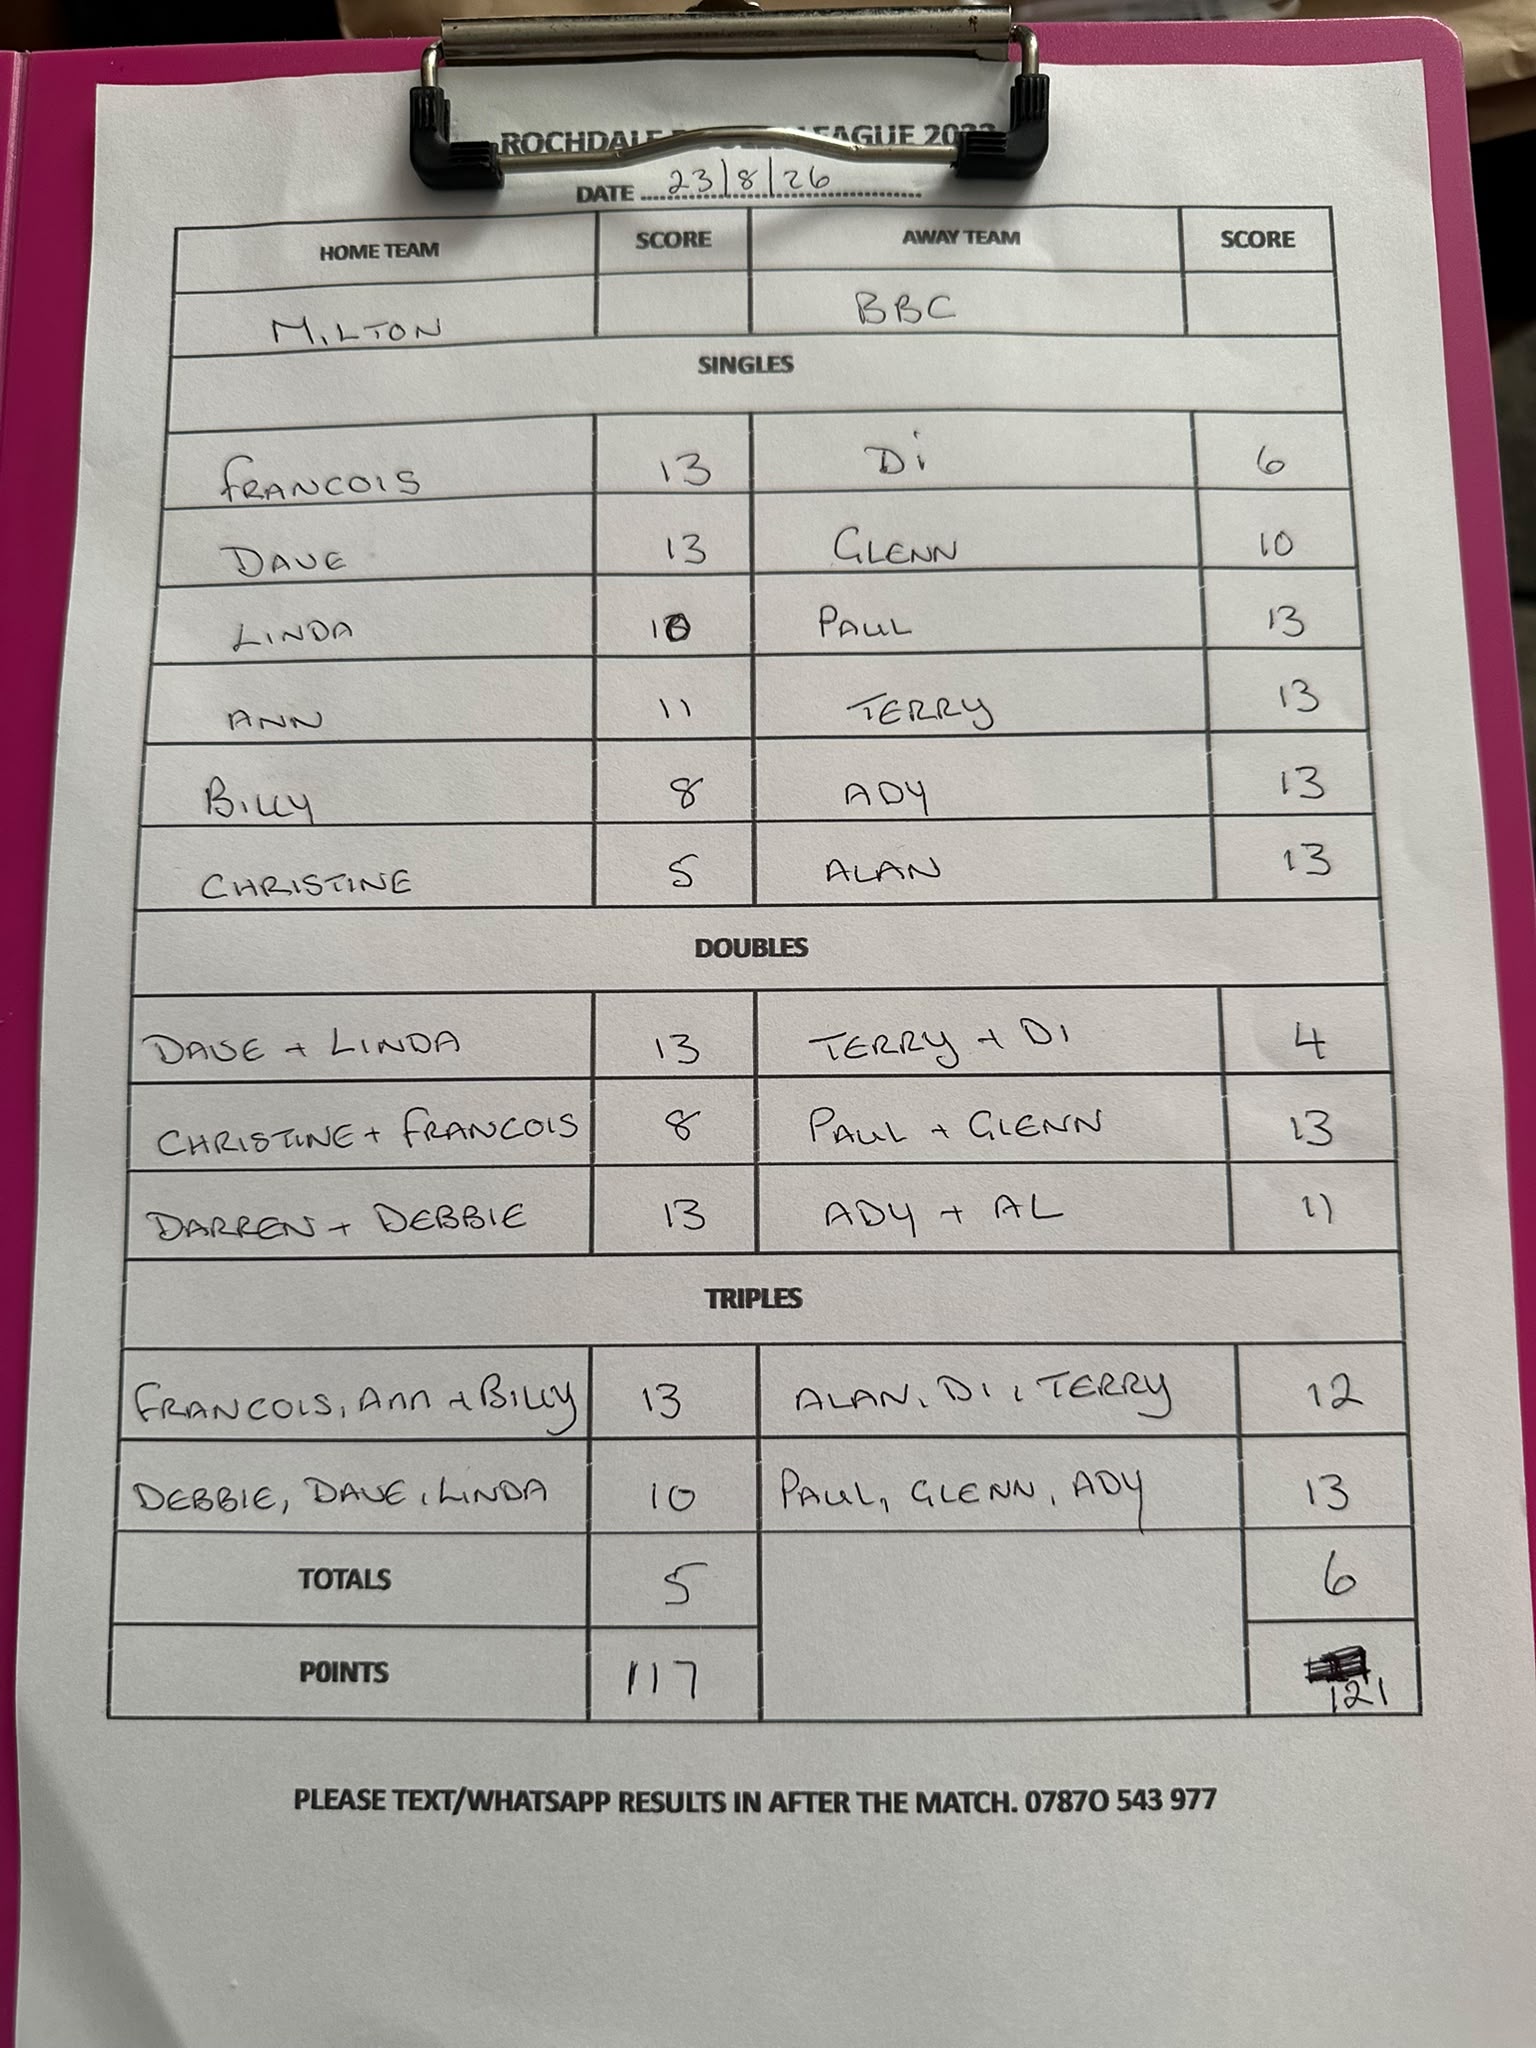 ROCHDALE LEAGUE
DATE 23/8/26
HOME TEAM SCORE AWAY TEAM SCORE
MILTON BBC
SINGLES
FRANCOIS 13 Di 6
DAVE 13 GLENN 10
LINDA 10 PAUL 13
ANN 11 TERRY 13
BILLY 8 ADY 13
CHRISTINE 5 ALAN 13
DOUBLES
DAVE + LINDA 13 TERRY + DI 4
CHRISTINE + FRANCOIS 8 PAUL + GLENN 13
DARREN + DEBBIE 13 ADY + AL 11
TRIPLES
FRANCOIS, Ann + BILLY 13 ALAN, Di, TERRY 12
DEBBIE, DAVE, LINDA 10 PAUL, GLENN, ADY 13
TOTALS 5 6
POINTS 117 121
PLEASE TEXT/WHATSAPP RESULTS IN AFTER THE MATCH. 0787O 543 977